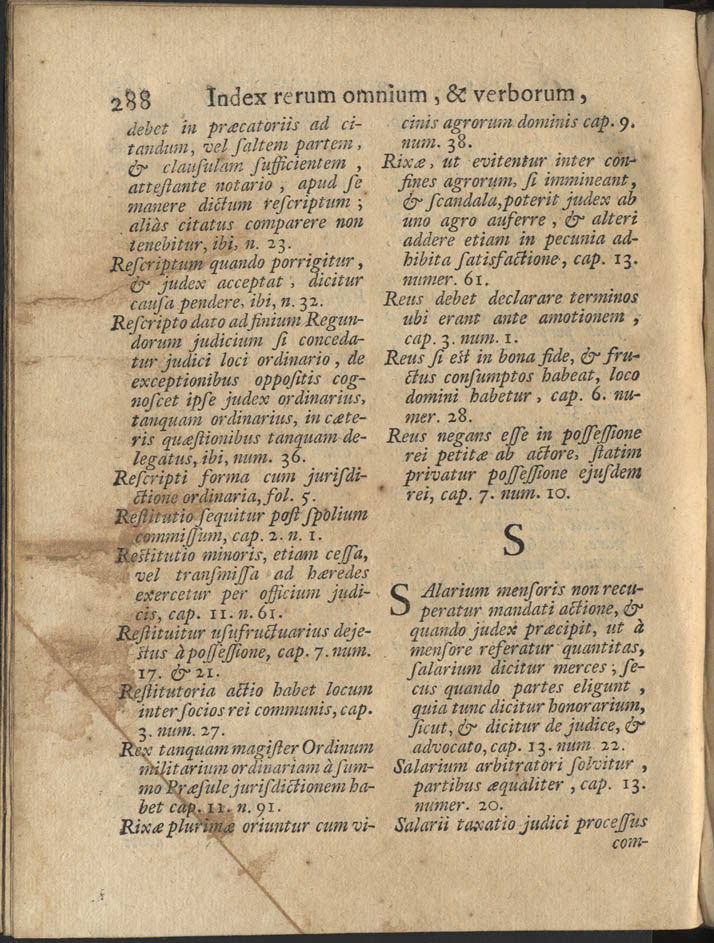 288 Index rerum omnium, & verborum,
debet in præcatoriis ad ci-
tandum, vel ſaltem partem,
& clauſulam ſufficientem,
atteſtante notario, apud ſe
manere dictum reſcriptum;
aliàs citatus comparere non
tenebitur, ibi, n. 23.
Reſcriptum quando porrigitur,
& judex acceptat, dicitur
cauſa pendere, ibi, n. 32.
Reſcripto dato ad finium Regun-
dorum judicium ſi conceda-
tur judici loci ordinario, de
exceptionibus oppoſitis cog-
noſcet ipſe judex ordinarius,
tanquam ordinarius, in cæte-
ris quæſtionibus tanquam de-
legatus, ibi, num. 36.
Reſcripti forma cum juriſdi-
ctione ordinaria, fol. 5.
Reſtitutio ſequitur poſt ſpolium
commiſſum, cap. 2. n. 1.
Reſtitutio minoris, etiam ceſſa,
vel tranſmiſſa ad hæredes
exercetur per officium judi-
cis, cap. 11. n. 61.
Reſtituitur uſufructuarius deje-
ctus à poſſeſſione, cap. 7. num.
17. & 21.
Reſtitutoria actio habet locum
inter ſocios rei communis, cap.
3. num. 27.
Rex tanquam magiſter Ordinum
militarium ordinariam à ſum-
mo Præſule juriſdictionem ha-
bet cap. 11. n. 91.
Rixæ plurimæ oriuntur cum vi-
cinis agrorum dominis cap. 9.
num. 38.
Rixæ, ut evitentur inter con-
fines agrorum, ſi immineant,
& ſcandala, poterit judex ab
uno agro auferre, & alteri
addere etiam in pecunia ad-
hibita ſatisfactione, cap. 13.
numer. 61.
Reus debet declarare terminos
ubi erant ante amotionem,
cap. 3. num. 1.
Reus ſi eſt in bona fide, & fru-
ctus conſumptos habeat, loco
domini habetur, cap. 6. nu-
mer. 28.
Reus negans eſſe in poſſeſſione
rei petitæ ab actore, ſtatim
privatur poſſeſſione ejuſdem
rei, cap. 7. num. 10.
S
SAlarium menſoris non recu-
peratur mandati actione, &
quando judex præcipit, ut à
menſore referatur quantitas,
ſalarium dicitur merces; ſe-
cus quando partes eligunt,
quia tunc dicitur honorarium,
ſicut, & dicitur de judice, &
advocato, cap. 13. num 22.
Salarium arbitratori ſolvitur,
partibus æqualiter, cap. 13.
numer. 20.
Salarii taxatio judici proceſſus
com-